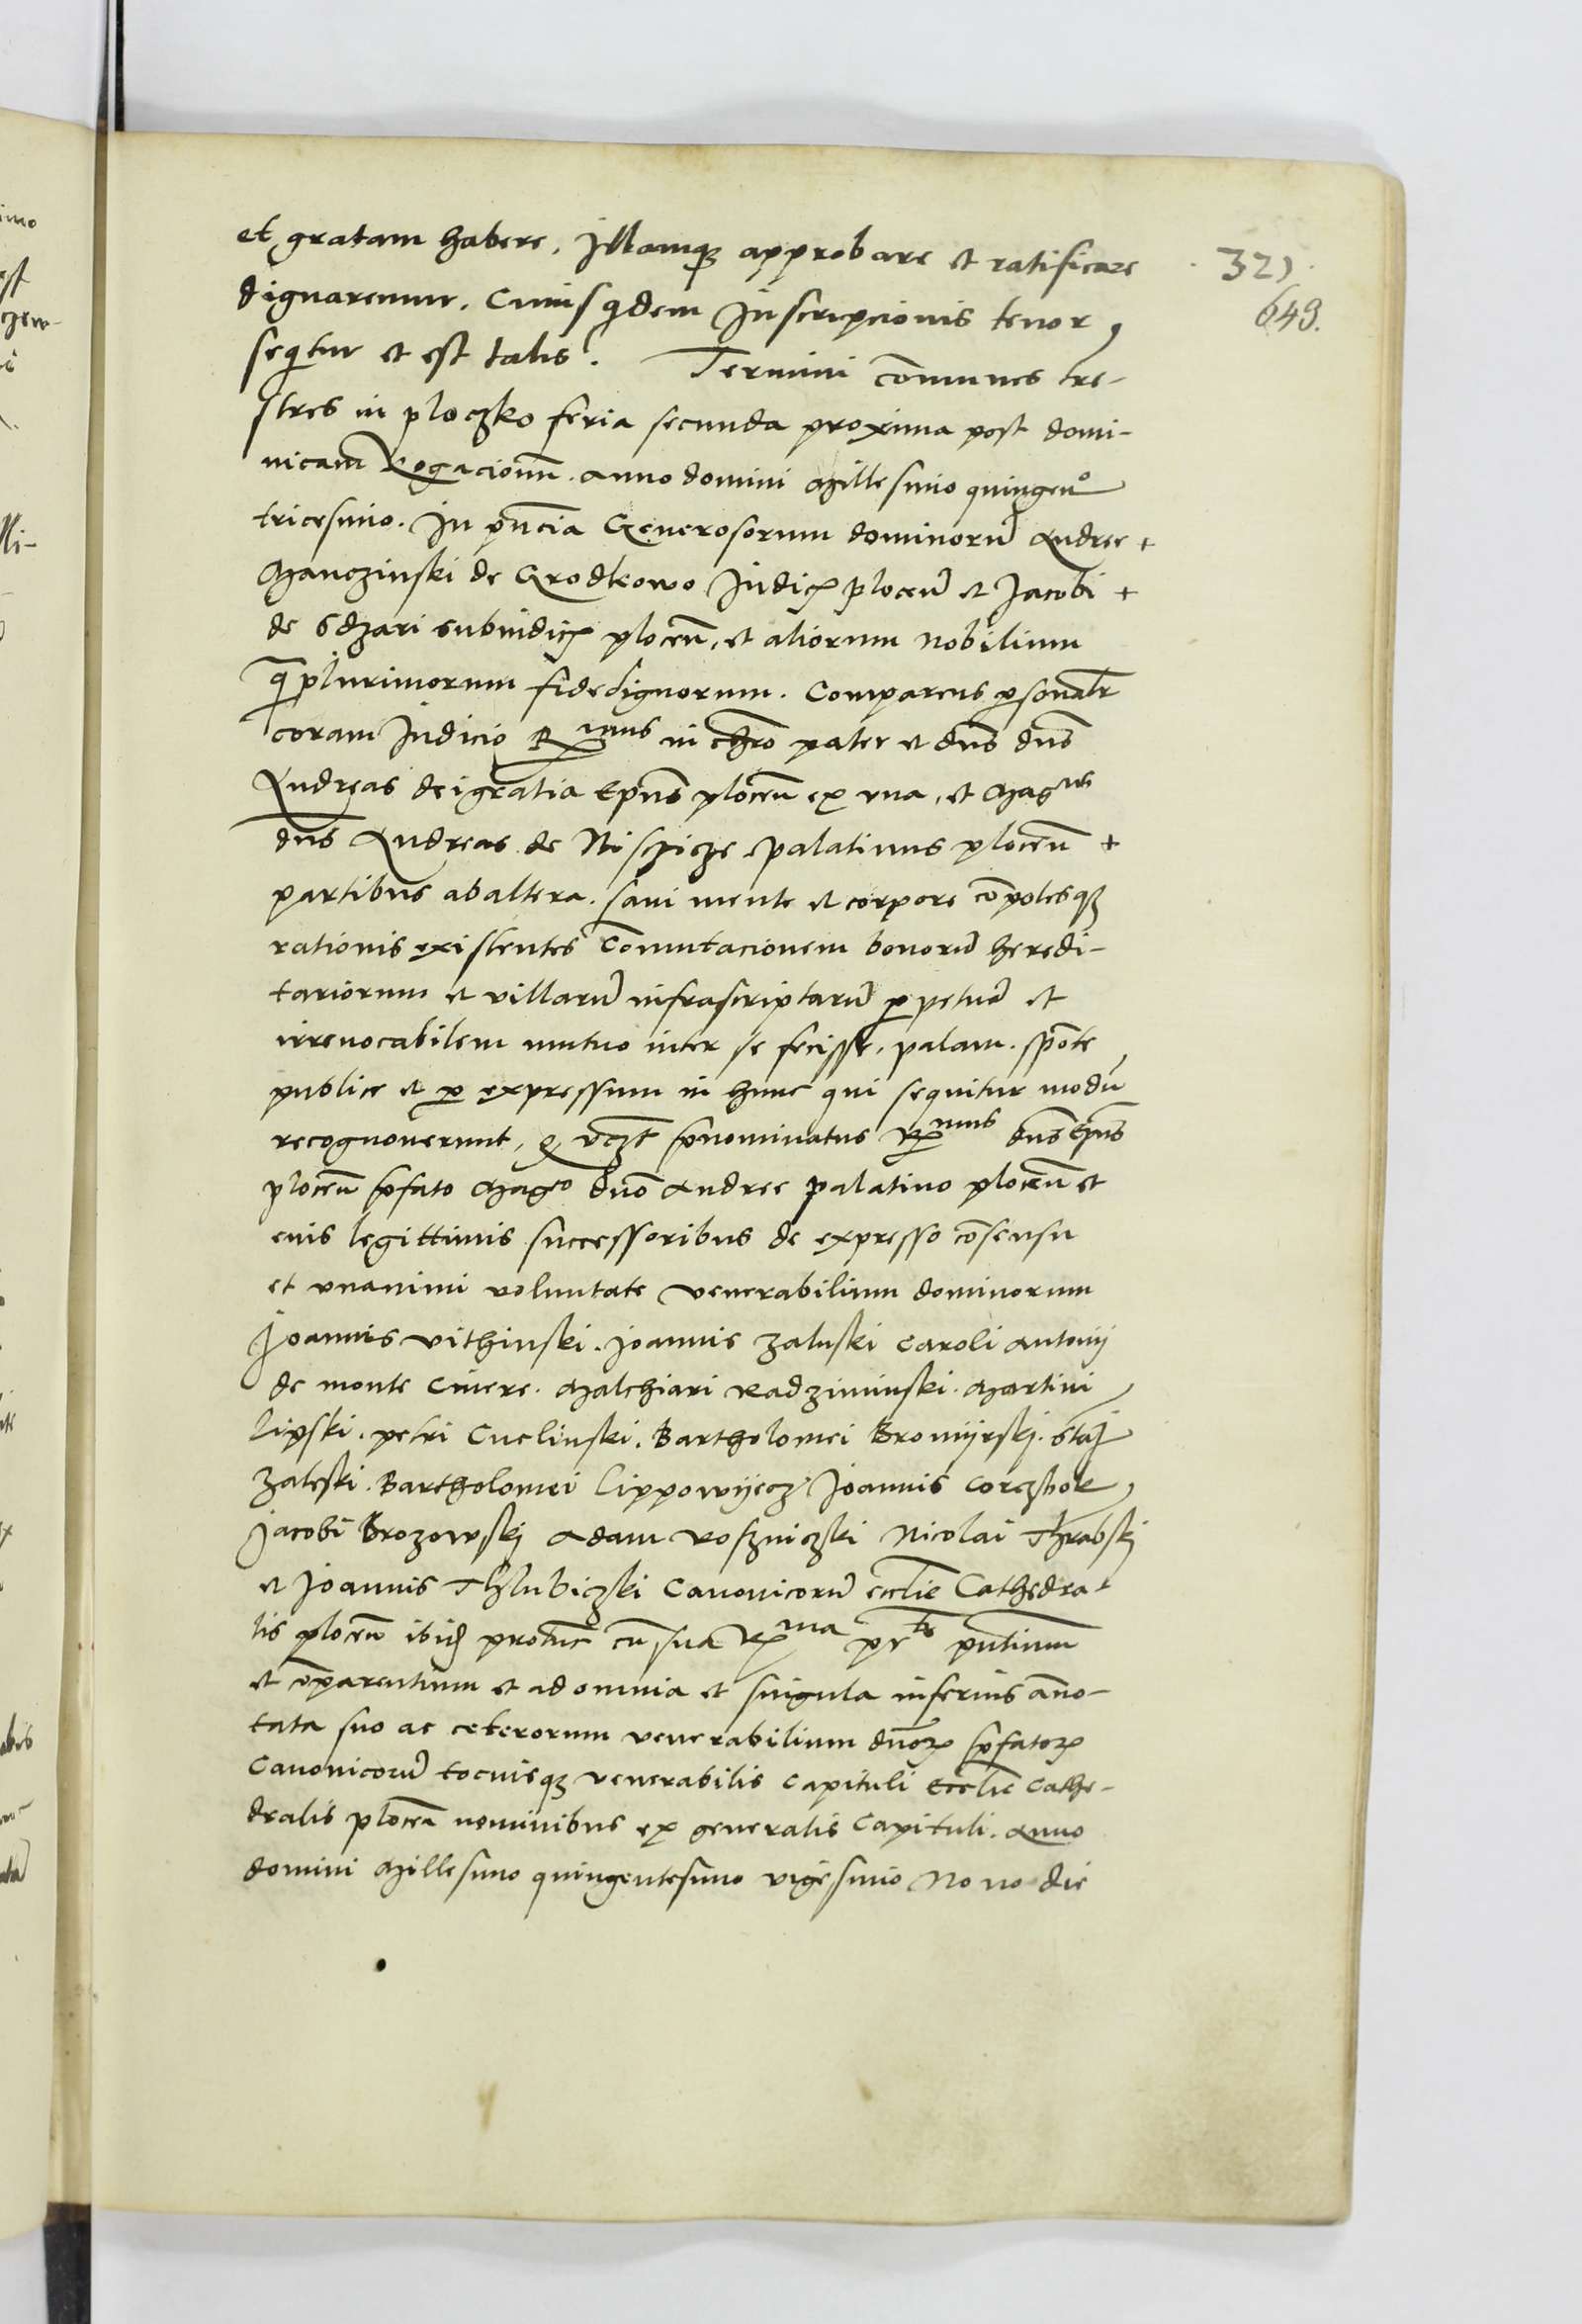 et gratam habere, Illamqȝ approbare et ratificare
dignaremur. Cuius qͥdem Inscripcionis tenor
seqͥtur et est talis. Termini com̄unes tre-
stres in ploczko feria secunda proxima post domi-
nicam Rogacionū. Anno domini Millesimo quingenº
tricesimo. In pn̄cia Generosorum dominorū Andree +
Manczinski de Grodkowo Iudicꝭ plocen̄ et Jacobi +
de Sdzari subiudicꝭ plocen̄, et aliorum nobilium
qͣplurimorum fidedignorum. Comparens ꝑsonalr̄
coram Judicio Rmus in chr̄o pater et dn̄s dn̄s
Andreas dei gratia Epūs plocen̄ ex vna, et Magcus
dn̄s Andreas de Nisczicze palatinus plocen̄ +
partibus ab altera. sani mente et corpore cōpotesqȝ
rationis existentes Com̄utacionem bonorū heredi-
tariorum et villarū infrascriptarū ꝑpetuā et
irreuocabilem mutuo inter se fecisse, palam. spōte
publice et ꝑ expressum in hunc qui sequitur modū
recognouerunt, Qꝫ vcȝt p̄nominatus Rmus dn̄s Epūs
plocen̄ p̄fato Magco dn̄o Andree palatino plocen̄ et
eius legittimis successoribus de expresso cōsensu
et vnanimi voluntate venerabilium dominorum
Joannis vithinski. Joannis zaluski Caroli Antonij
de monte Cinere. Malchiari Radziminski. Martini
lipski. petri Cuelinski. Bartholomei Bromijrskj. Staꝭ
zaleski. Bartholomei lippowijecz Joannis Corczbok
Jacobi Brozowskj Adam koszniczki Nicolai Thrabskj
et Joannis Thlubiczki Canonicorū ecclīe Cathedra-
lis plocen̄ ibidꝫ protūc cū sua Rma prte pn̄tium
et cōparentium et ad omnia et singula inferius āno-
tata suo ac ceterorum venerabilium dn̄orꝫ p̄fatorꝫ
Canonicorū tocuisqȝ venerabilis Capituli Ecclīe Cathe-
dralis plocen̄ nominibus ex generalis Capituli. Anno
domini Millesimo quingentesimo vigesimo Nono die
325
649.